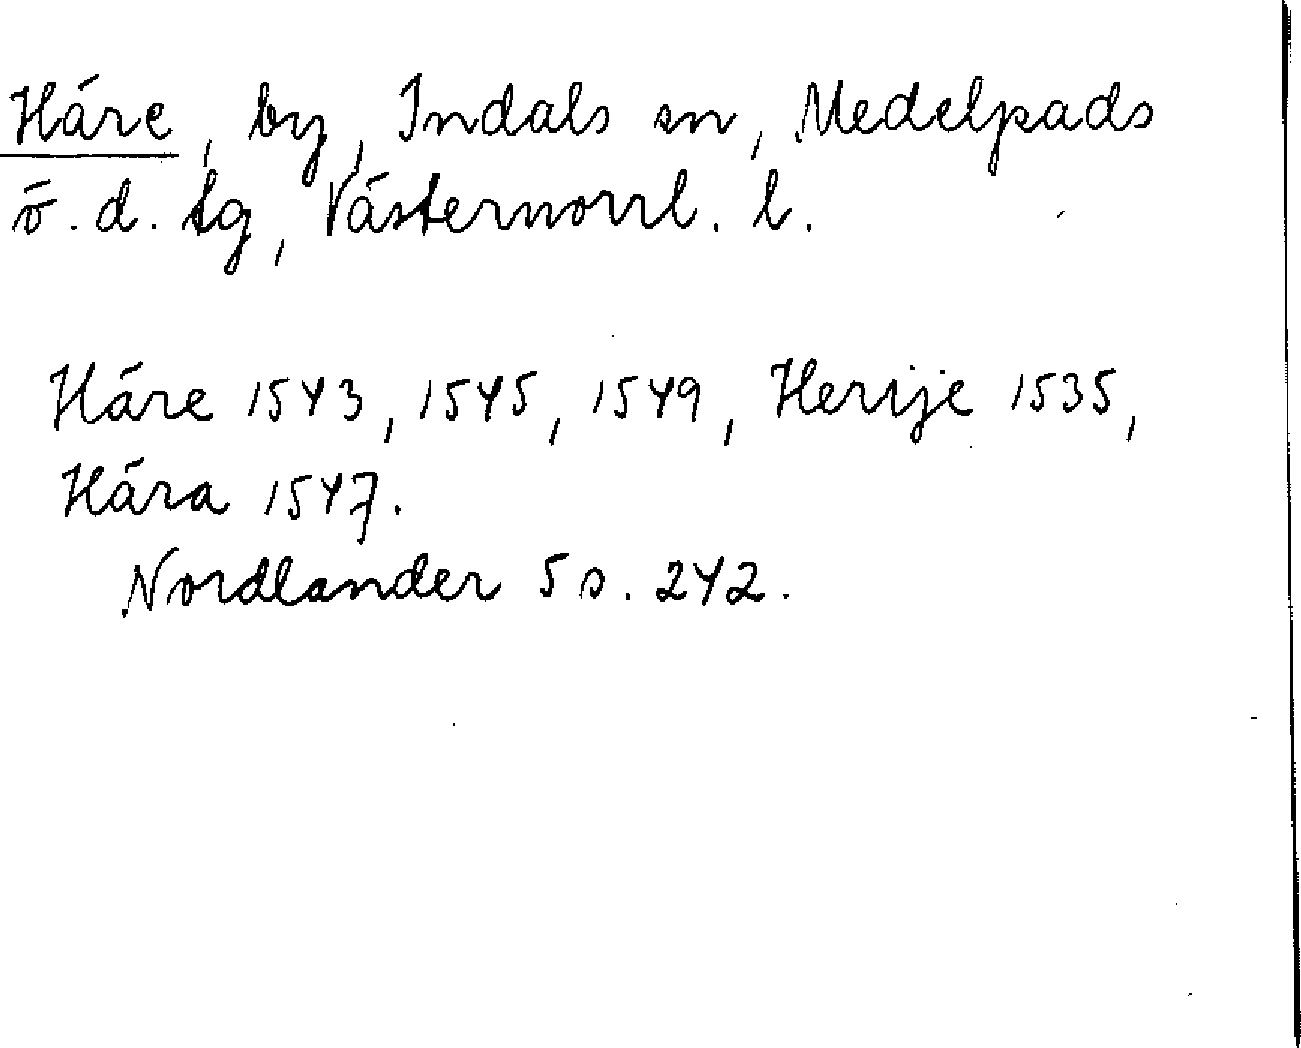 Häre, by, Indals sn, Medelpads
ö. d. tg, Västernorrl. l.
Häre 1543, 1545, 1549, Herije 1535,
Hära 1547.
Nordlander 5 s. 242.